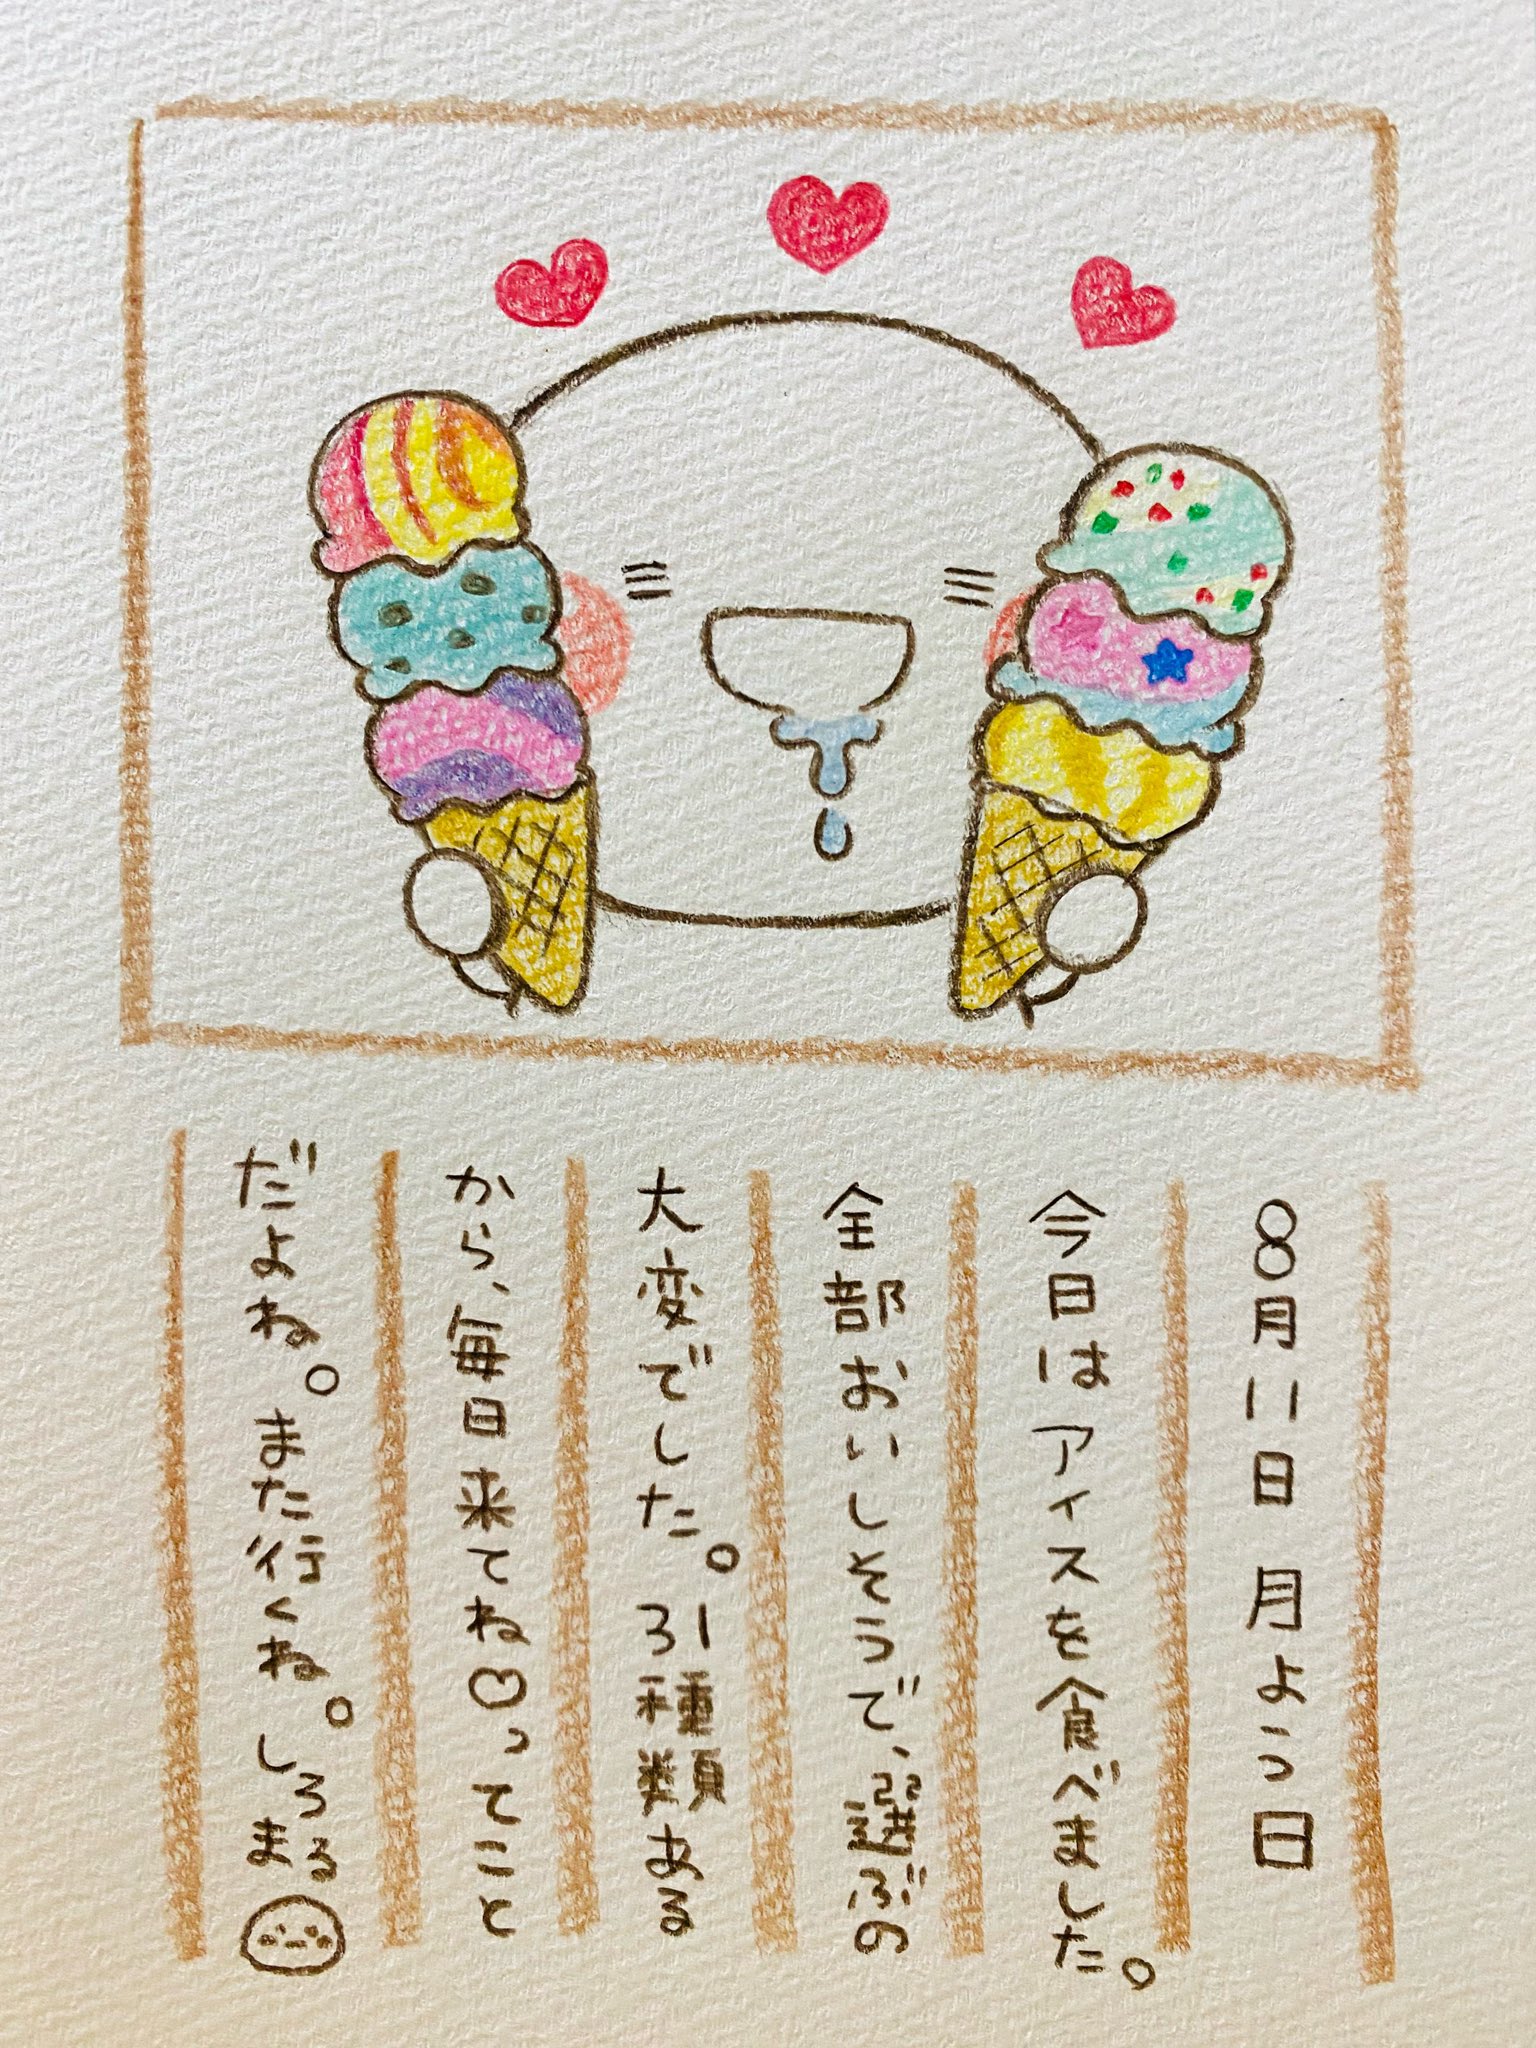 8月11日 月よう日
今日はアイスを食べました。
全部おいしそうで、選ぶの
大変でした。31種類ある
から、毎日来てね♡ってこと
だよね。また行くね。しろまる